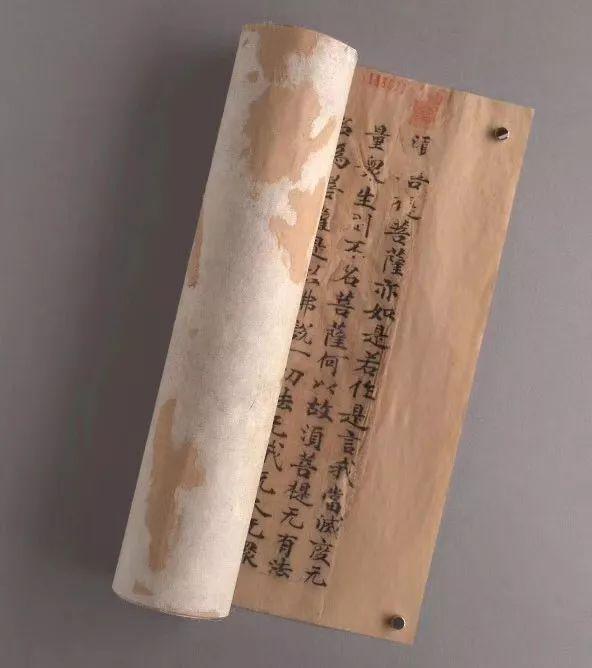 須菩提菩薩亦如是若作是言我當滅度无
量眾生則不名菩薩何以故須菩提无有法
名為菩薩是故佛說一切法无我无人无眾